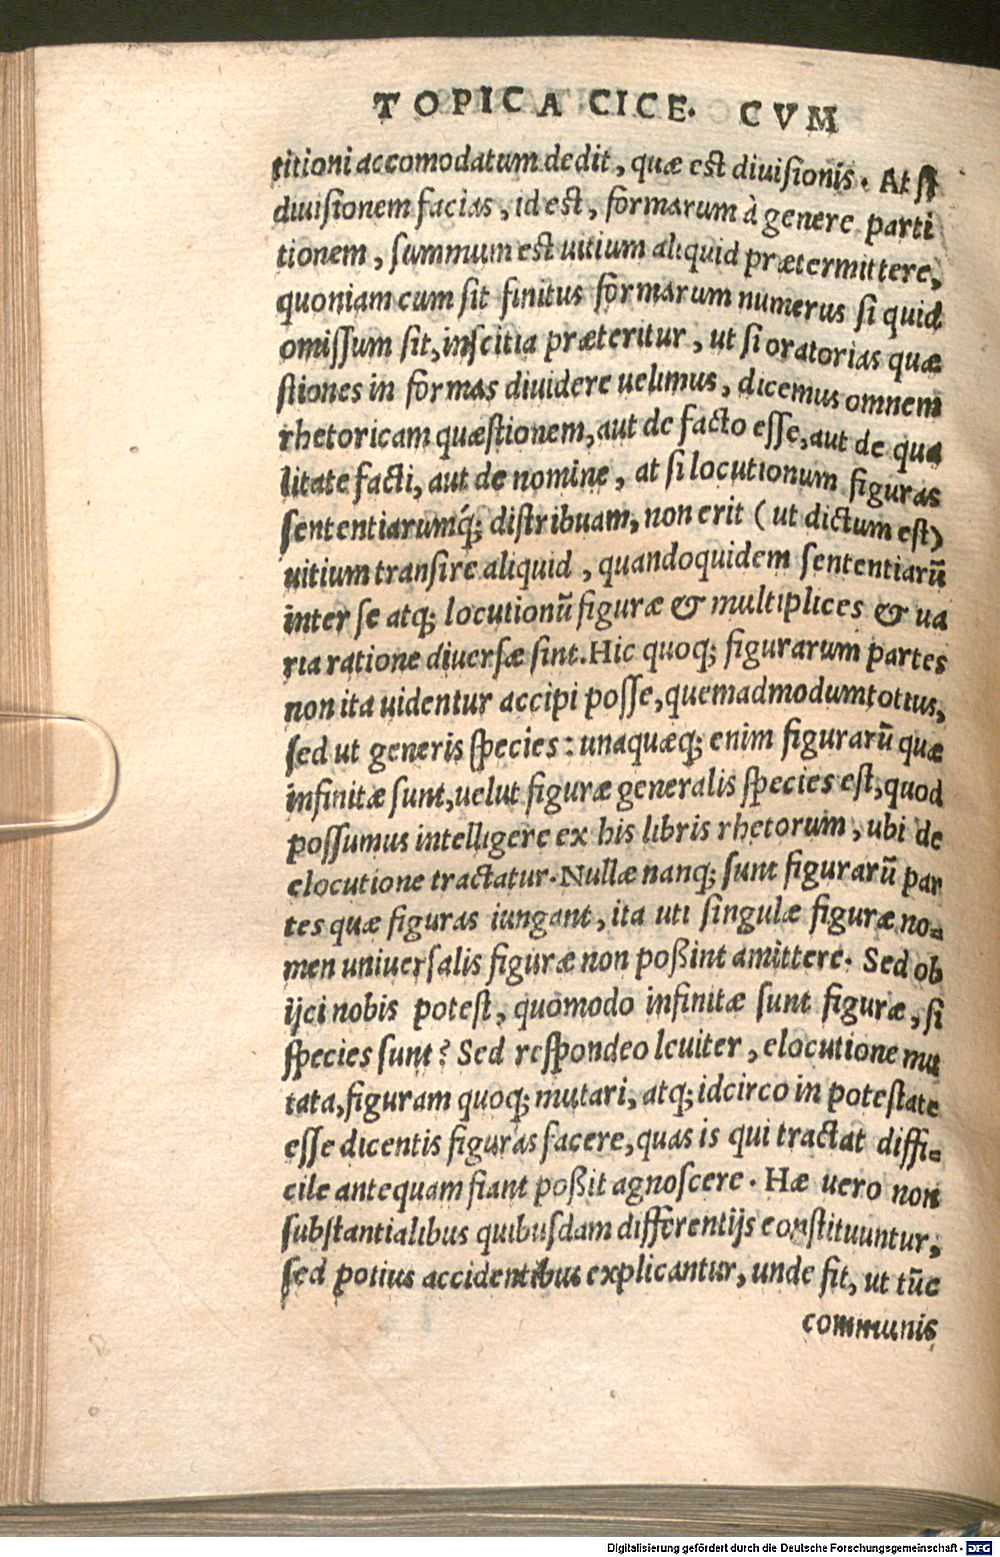 TOPICA CICE. CVM
titioni accomodatum dedit, quæ est diuisionis. At si
diuisionem facias, id est, formarum à genere parti
tionem, summum est uitium aliquid prætermittere,
quoniam cum sit finitus formarum numerus si quid
omissum sit, inscitia præteritur, ut si oratorias quæ
stiones in formas diuidere uelimus, dicemus omnem
rhetoricam quæstionem, aut de facto esse, aut de qua
litate facti, aut de nomine, at si locutionum figuras
sententiarumq́; distribuam, non erit (ut dictum est)
uitium transire aliquid, quandoquidem sententiarū
inter se atq; locutionū figuræ & multiplices & ua
ria ratione diuersæ sint. Hic quoq; figurarum partes
non ita uidentur accipi posse, quemadmodum totius,
sed ut generis species: unaquæq; enim figurarū quæ
infinitæ sunt, uelut figuræ generalis species est, quod
possumus intelligere ex his libris rhetorum, ubi de
elocutione tractatur. Nullæ nanq; sunt figurarū par
tes quæ figuras iungant, ita uti singulæ figuræ no-
men uniuersalis figuræ non poßint amittere. Sed ob
ijci nobis potest, quomodo infinitæ sunt figuræ, si
species sunt? Sed respondeo leuiter, elocutione mu
tata, figuram quoq; mutari, atq; idcirco in potestate
esse dicentis figuras facere, quas is qui tractat diffi-
cile antequam fiant poßit agnoscere. Hæ uero non
substantialibus quibusdam differentijs constituuntur,
sed potius accidentibus explicantur, unde fit, ut tūc
communis
Digitalisierung gefördert durch die Deutsche Forschungsgemeinschaft - DFG